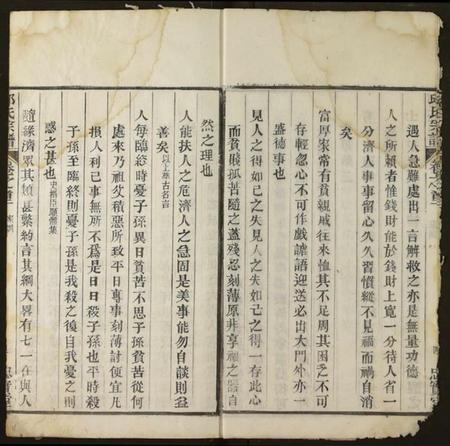 遇人急難處出一言解救之亦是無量功德
人之所賴者惟錢財能於錢財上寬一分待人省一
分濟人事事留心久久習慣縱不見福而禍自消
矣
富厚家常有貧親戚往來恤其不足周其困乏不可
存輕忽心不可作戲謔語迎送必出大門外亦一
盛德事也
見人之得如己之得見人之失如己之失一存此心
而貧賤孤苦隨之蓋殘忍刻薄原非享福之器自
然之理也
人能扶人之危濟人之急固是美事能勿自談則益
善矣以上葉古名言
人每臨終時憂子孫異日貧苦不思子孫貧苦從何
處來乃祖父積惡所致平日專事刻薄討便宜凡
損人利己事無所不為是日日殺子孫也平時殺
子孫至臨終則憂子孫是我殺之復自我憂之則
惑之甚也
隨緣濟眾其類甚繁約言其綱大畧有七一在與人
邱氏宗譜
卷之首